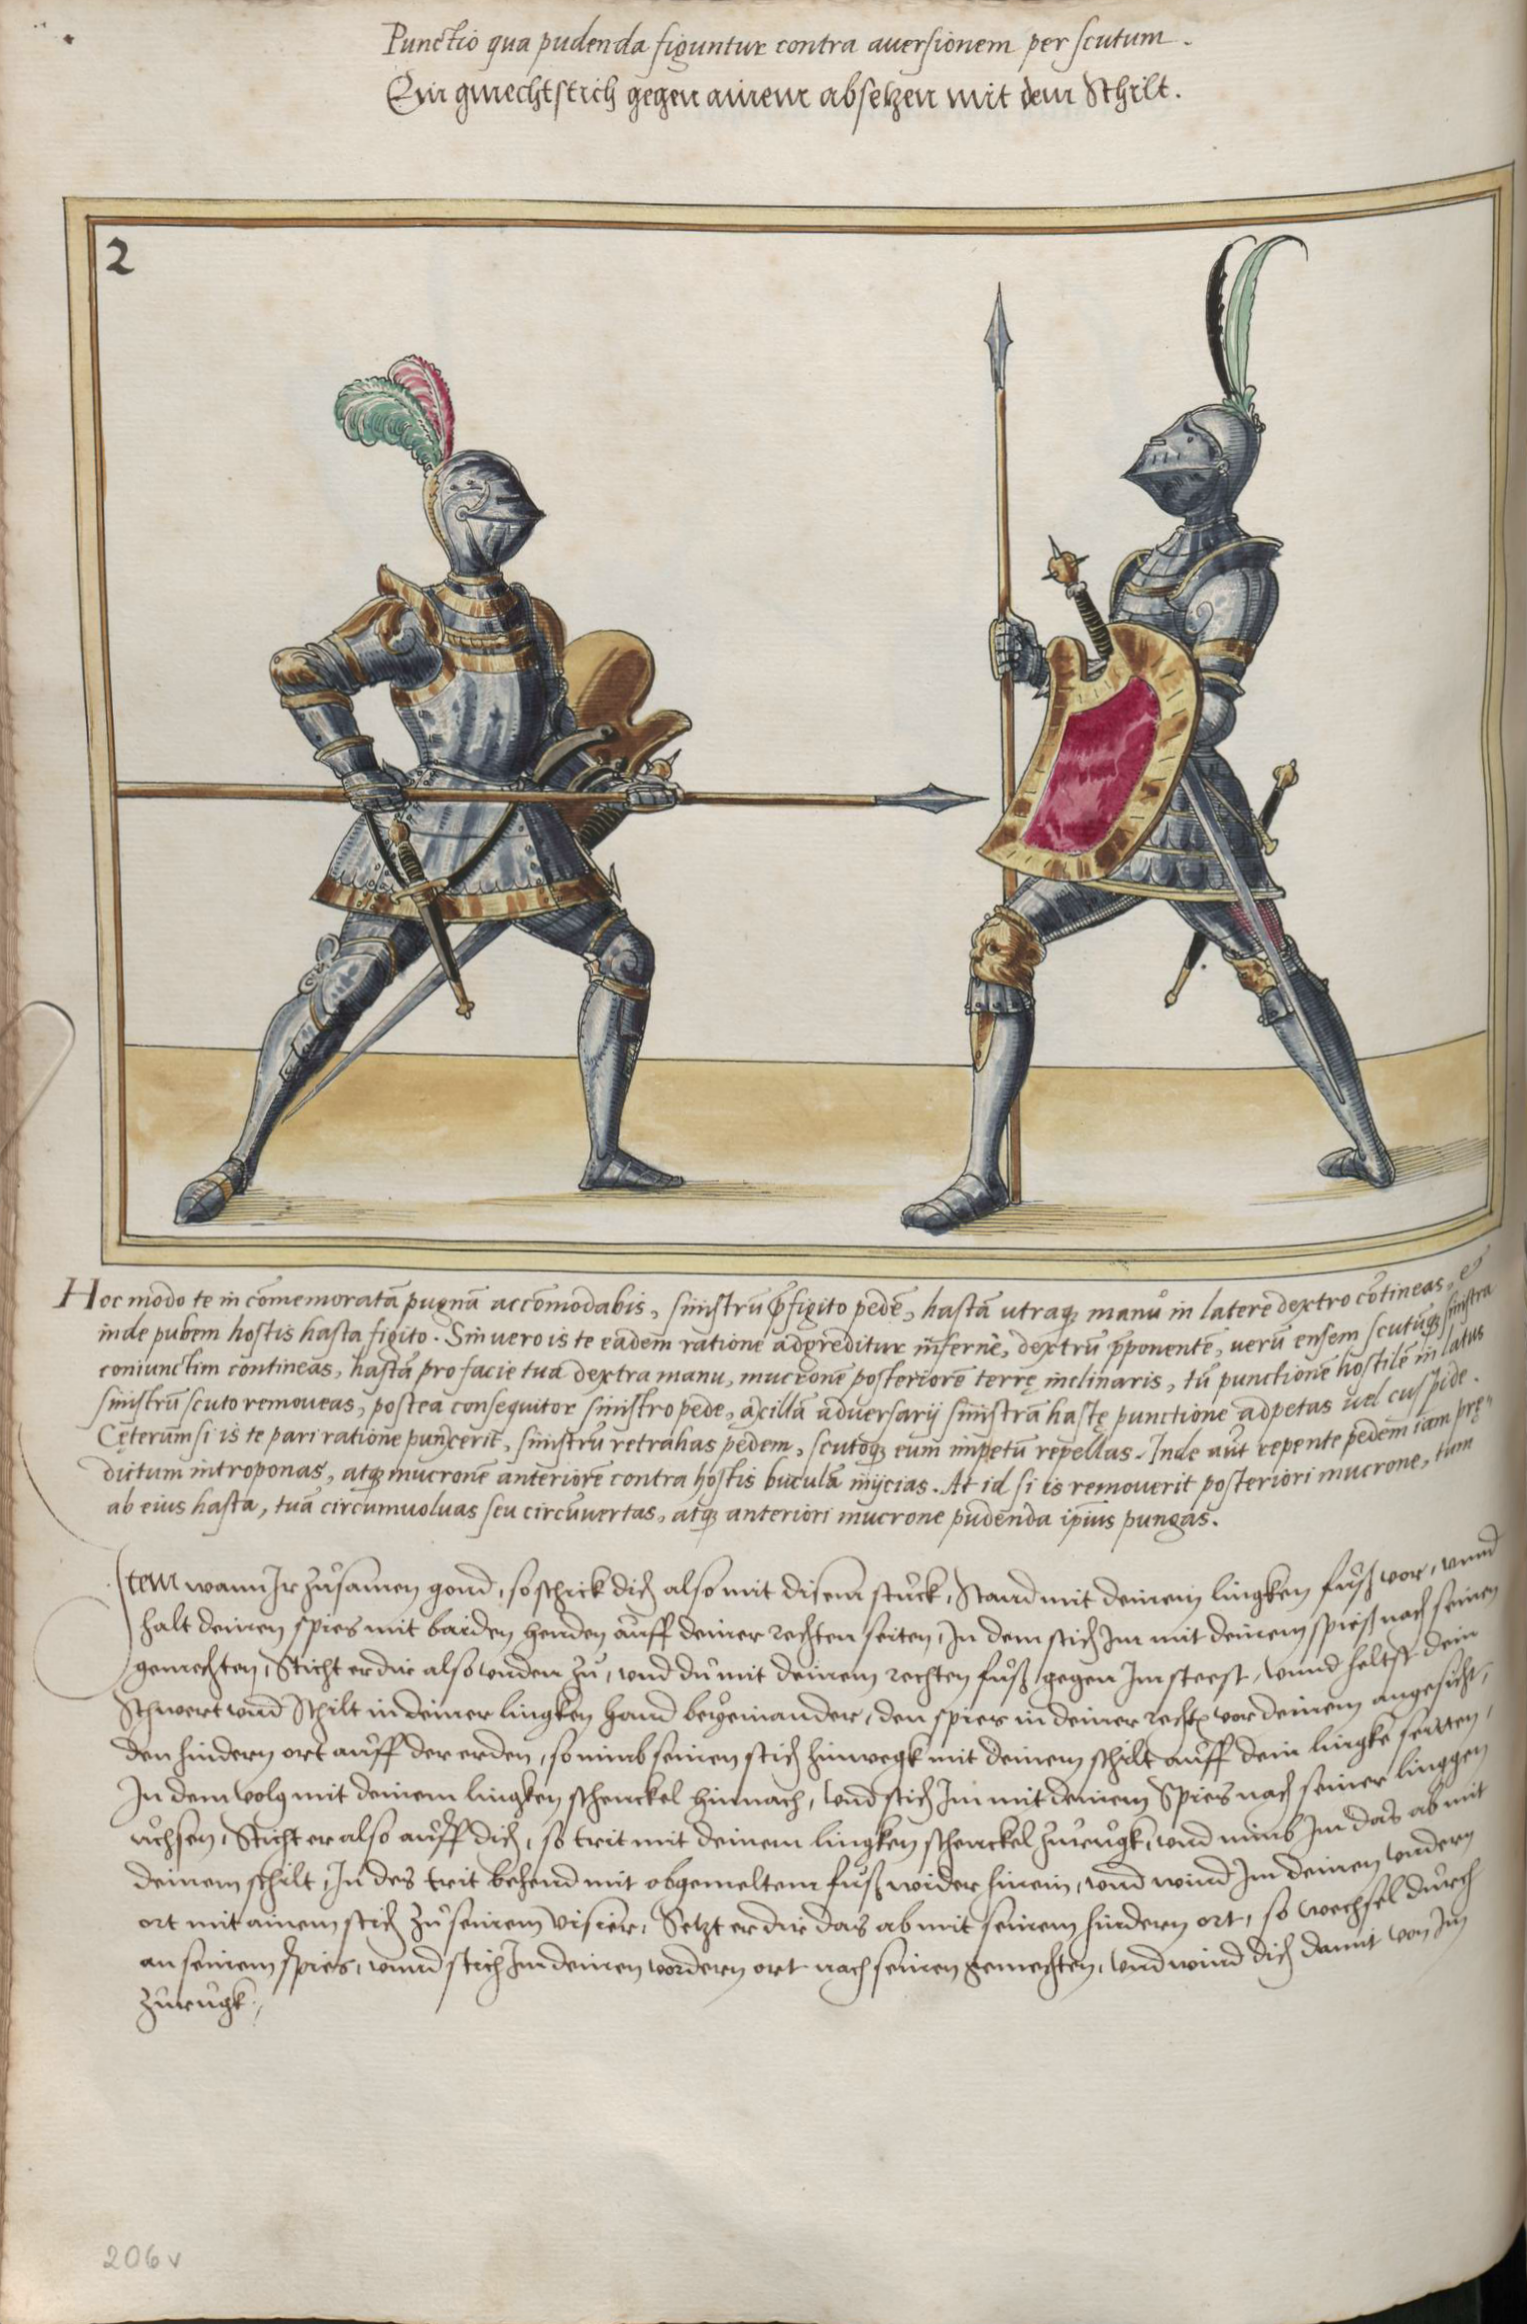 Punctio qua pudenda figuntur contra auersionem per scutum.
Ein gmechtstich gegen ainem absetzen mit dem Schilt.
2
Hoc modo te in cōmemoratā pugnā accōmodabis, sinistrū p̄figito pedē, hastā utraq; manu in latere dextro cōtineas, &
inde pubem hostis hasta figito. Sin uero is te eadem ratione adgreditur infernè, dextrū p̄ponentē, uerū ensem scutūq; sinistra
coniunctim contineas, hastā pro facie tua dextra manu, mucronē posteriorē terrę inclinaris, tū punctionē hostilē in latus
sinistrū scuto remoueas, postea consequitor sinistro pede, axillā aduersarij sinistrā hastę punctione adpetas uel cuspide.
Cęterum si is te pari ratione punxerit, sinistrū retrahas pedem, scutoq; eum impetū repellas. Inde aūt repente pedem iam prę-
dictum introponas, atq; mucronē anteriorē contra hostis buculā inijcias. At id si is remouerit posteriori mucrone, tum
ab eius hasta, tuā circumuoluas seu circūuertas, atq; anteriori mucrone pudenda ipsius pungas.
Item wann Ir zůsamen gond, so schick dich also mit disem stuck, Stand mit deinem lingken fůß vor, vnnd
halt deinen spies mit baiden henden auff deiner rechten seiten, In dem stich Im mit deinem spieß nach seinen
gemechten, Sticht er dir also vnden zů, vnd du mit deinem rechten fůß gegen Im steest, vnnd heltst dein
Schwert vnd Schilt in deiner lingken hand beyeinander, den spies in deiner rechtē vor deinem angesicht,
den hindern ort auff der erden, so nimb seinen stich hinwegk mit deinem schilt auff dein lingke seitten,
In dem volg mit deinem lingken schenckel hinnach, vnd stich Im mit deinem Spies nach seiner linggen
vchsen, Sticht er also auff dich, so trit mit deinem lingken schenckel zurugk, vnd nimb Im das ab mit
deinem schilt, In des trit behend mit obgemeltem fůß wider hinein, vnd wind Im deinen vordern
ort mit ainem stich zů seinem visier, Setzt er dir das ab mit seinem hindern ort, so wechsel durch
an seinem spies, vnnd stich Im deinen vordern ort nach seinen gemechten, vnd wind dich damit von Im
zurugk.
206v